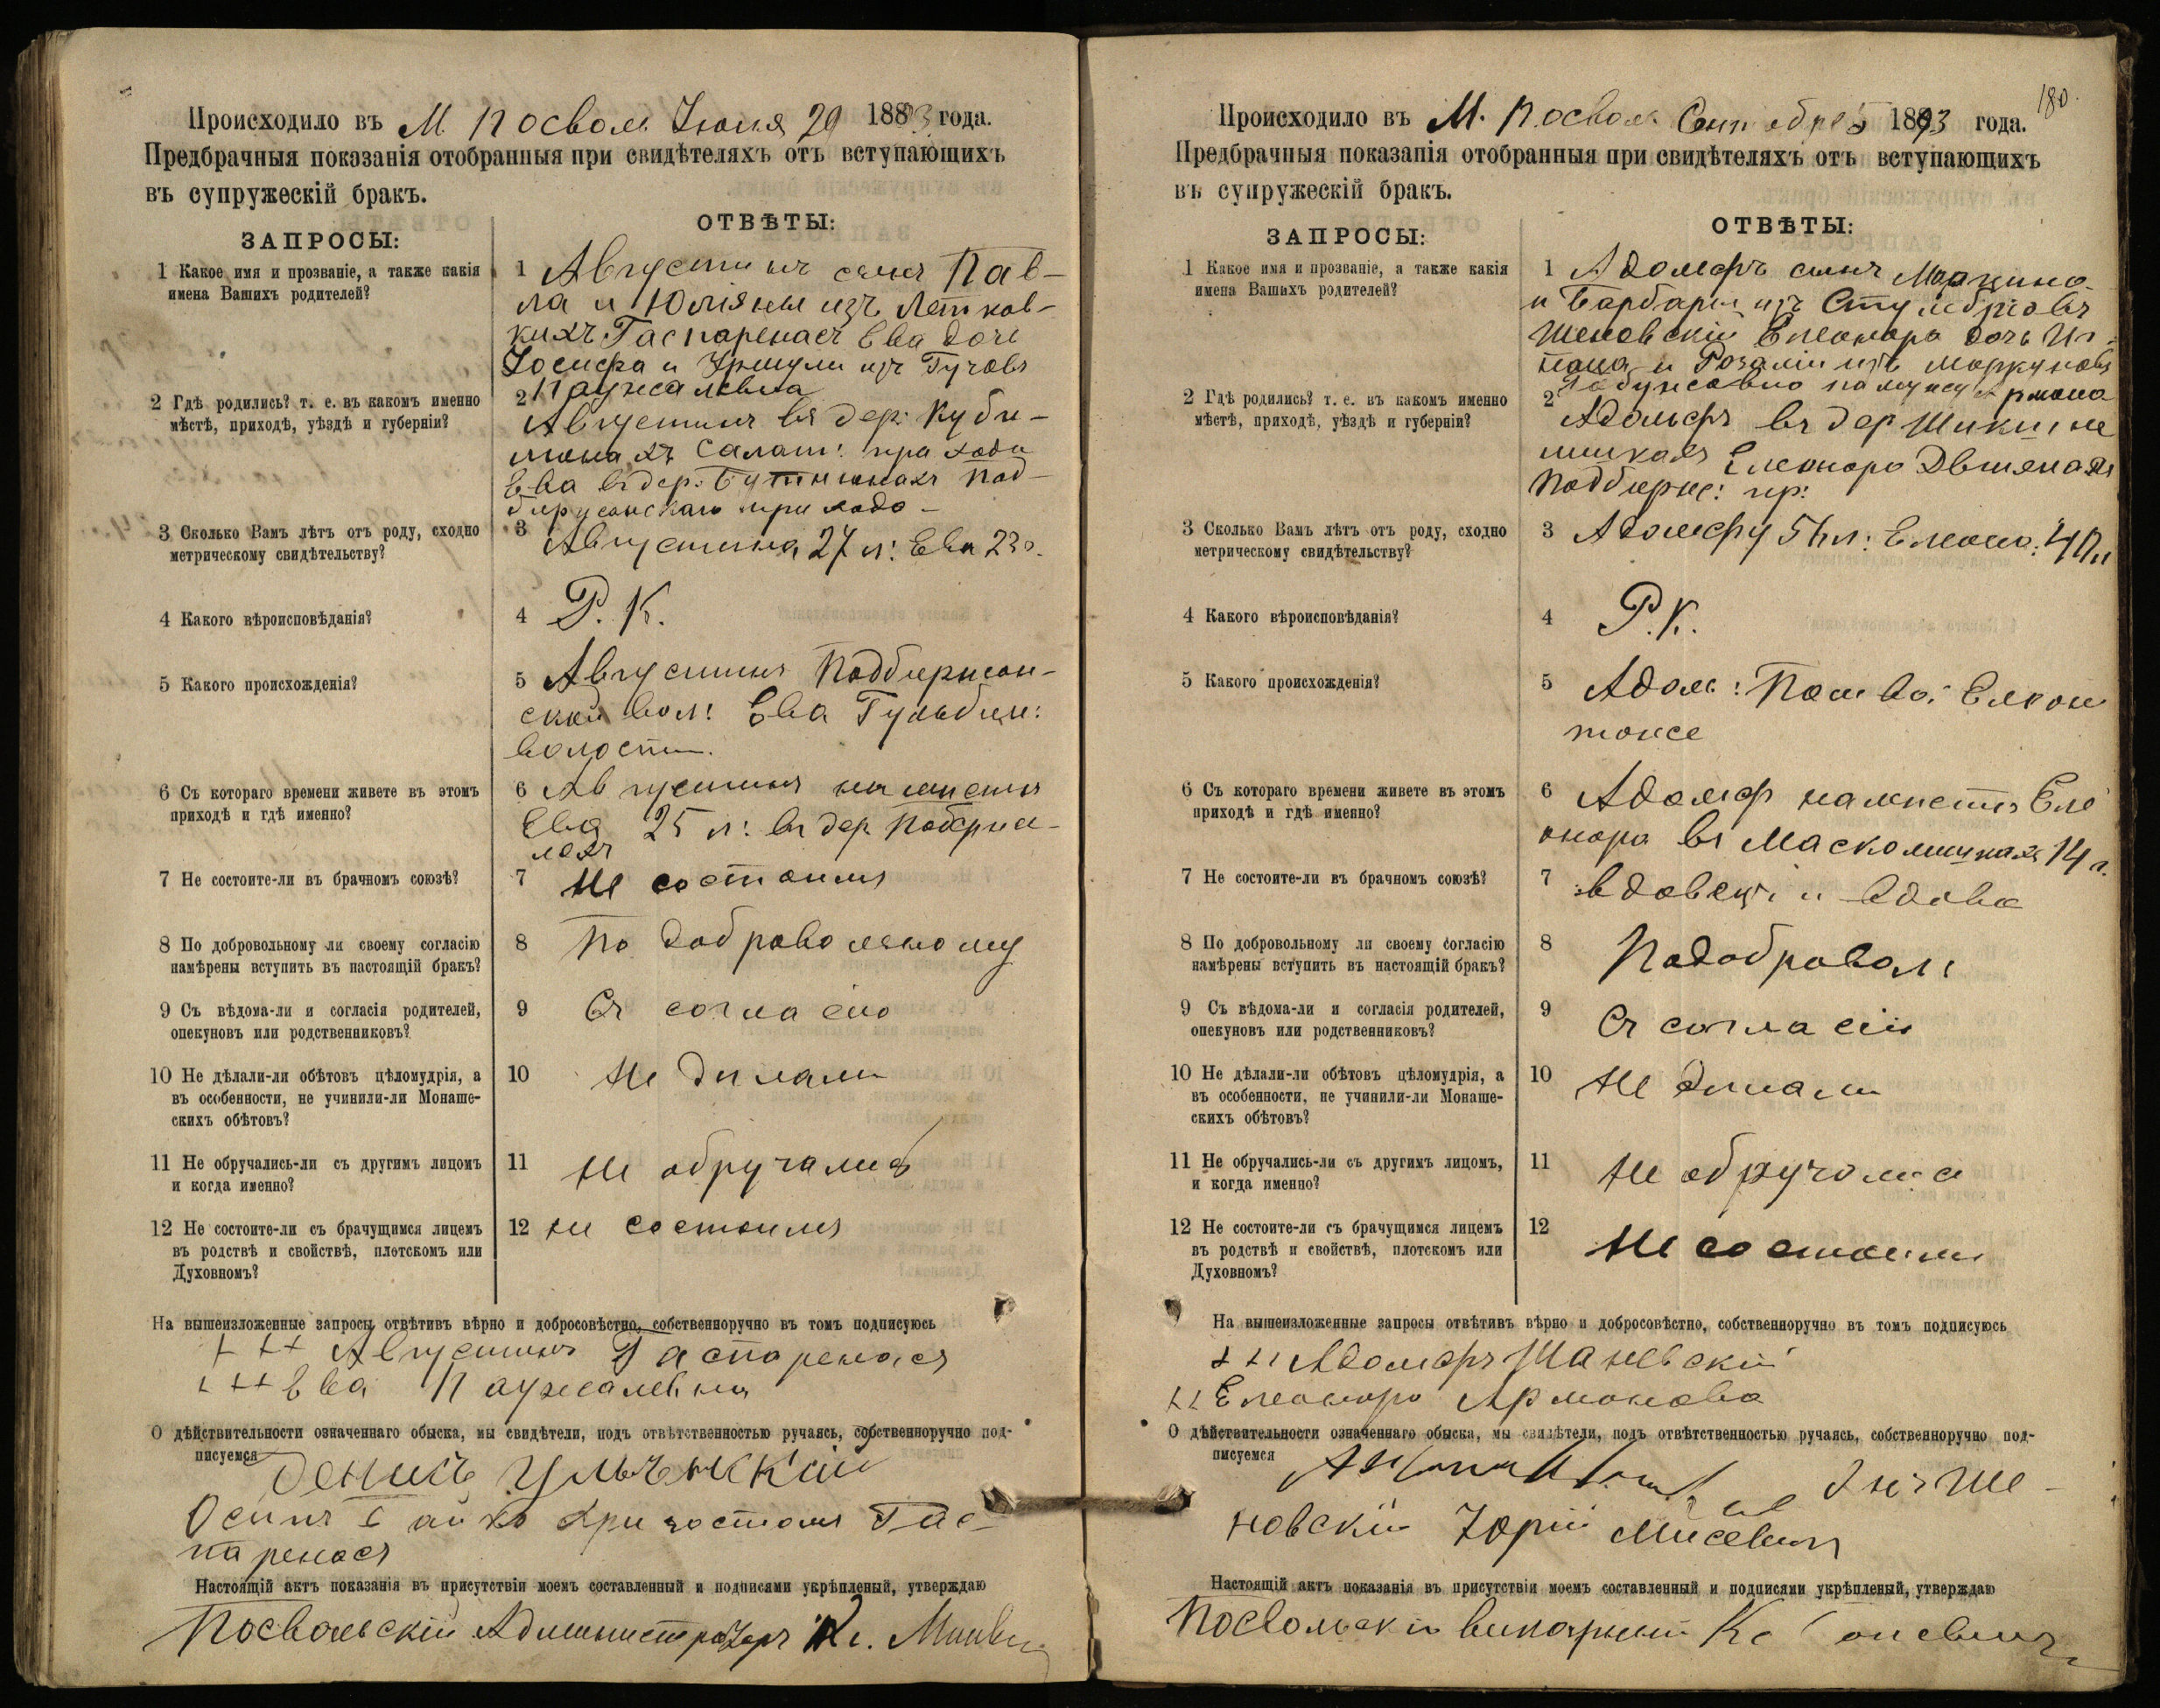 Происходило въ М. Посвол. Іюня 29 1893 года.
Предбрачныя показанія отобранныя при свидѣтеляхъ отъ вступающихъ
въ супружескій бракъ.
ЗАПРОСЫ:
ОТВѢТЫ:
1 Какое имя и прозваніе, а также какія
имена Вашихъ родителей?
1 Августинъ сынъ Пав-
ла и Юліяны изъ Летков-
кихъ Гаспаренасъ Ева дочь
Іосифа и Уршули изъ
2 Гдѣ родились? т. е. въ какомъ именно
мѣстѣ, приходѣ, уѣздѣ и губерніи?
2 Августинъ въ дер: Куби-
Салат: прихода
Ева въ дер: Под-
прихода
3 Сколько Вамъ лѣтъ отъ роду, сходно
метрическому свидѣтельству?
3 Августину 27 л: Ева 23
4 Какого вѣроисповѣданія?
4 Р. К.
5 Какого происхожденія?
5 Августинъ Подбиржан-
ской вол: Ева Гульбин:
волости.
6 Съ котораго времени живете въ этомъ
приходѣ и гдѣ именно?
6 Августинъ
Ева 25 л: въ дер.
7 Не состоите-ли въ брачномъ союзѣ?
7 Не состоимъ
8 По добровольному ли своему согласію
намѣрены вступить въ настоящій бракъ?
8 По добровольному
9 Съ вѣдома-ли и согласія родителей,
опекуновъ или родственниковъ?
9 Съ согласію
10 Не дѣлали-ли обѣтовъ цѣломудрія, а
въ особенности, не учинили-ли Монаше-
скихъ обѣтовъ?
10 Не дилали
11 Не обручались-ли съ другимъ лицомъ
и когда именно?
11 Не обручались
12 Не состоите-ли съ брачущимся лицемъ
въ родствѣ и свойствѣ, плотскомъ или
Духовномъ?
12 не состоимъ
На вышеизложенные запросы отвѣтивъ вѣрно и добросовѣстно, собственноручно въ томъ подписуюсь
+ + + Августинъ Гаспаренасъ
+ + + Ева
О дѣйствительности означеннаго обыска, мы свидѣтели, подъ отвѣтственностью ручаясь, собственноручно под-
писуемся
Осипъ Гас-
паренасъ
Настоящій актъ показанія въ присутствіи моемъ составленный и подписями укрѣпленый, утверждаю
Посвольскій Администраторъ
180.
Происходило въ М. Посвол. 1893 года.
Предбрачныя показанія отобранныя при свидѣтеляхъ отъ вступающихъ
въ супружескій бракъ.
ЗАПРОСЫ:
ОТВѢТЫ:
1 Какое имя и прозваніе, а также какія
имена Вашихъ родителей?
1 Адольфъ сынъ Марцина
и Барбары изъ
Шеновскій Елеонора дочь Иг-
наца и Розаліи изъ
2 Гдѣ родились? т. е. въ какомъ именно
мѣстѣ, приходѣ, уѣздѣ и губерніи?
2 Адольфъ въ дер
Елеонора
пр:
3 Сколько Вамъ лѣтъ отъ роду, сходно
метрическому свидѣтельству?
3 Адольфу
4 Какого вѣроисповѣданія?
4 Р. К.
5 Какого происхожденія?
5 Адоль:
тоже
6 Съ котораго времени живете въ этомъ
приходѣ и гдѣ именно?
6 Адольф Еле
онора въ 14 л.
7 Не состоите-ли въ брачномъ союзѣ?
7 вдовецъ и вдова
8 По добровольному ли своему согласію
намѣрены вступить въ настоящій бракъ?
8 Подобровол:
9 Съ вѣдома-ли и согласія родителей,
опекуновъ или родственниковъ?
9 Съ согласію
10 Не дѣлали-ли обѣтовъ цѣломудрія, а
въ особенности, не учинили-ли Монаше-
скихъ обѣтовъ?
10 Не дилали
11 Не обручались-ли съ другимъ лицомъ,
и когда именно?
11 Не обручались
12 Не состоите-ли съ брачущимся лицемъ
въ родствѣ и свойствѣ, плотскомъ или
Духовномъ?
12 Не состоимъ
На вышеизложенные запросы отвѣтивъ вѣрно и добросовѣстно, собственноручно въ томъ подписуюсь
Адольфъ Шаневскій
Елеонора Армонова
О дѣйствительности означеннаго обыска, мы свидѣтели, подъ отвѣтственностью ручаясь, собственноручно под-
писуемся
Ше-
новскій Юрій Мисевичъ
Настоящій актъ показанія въ присутствіи моемъ составленный и подписями укрѣпленый, утверждаю
Посвольскій викарный